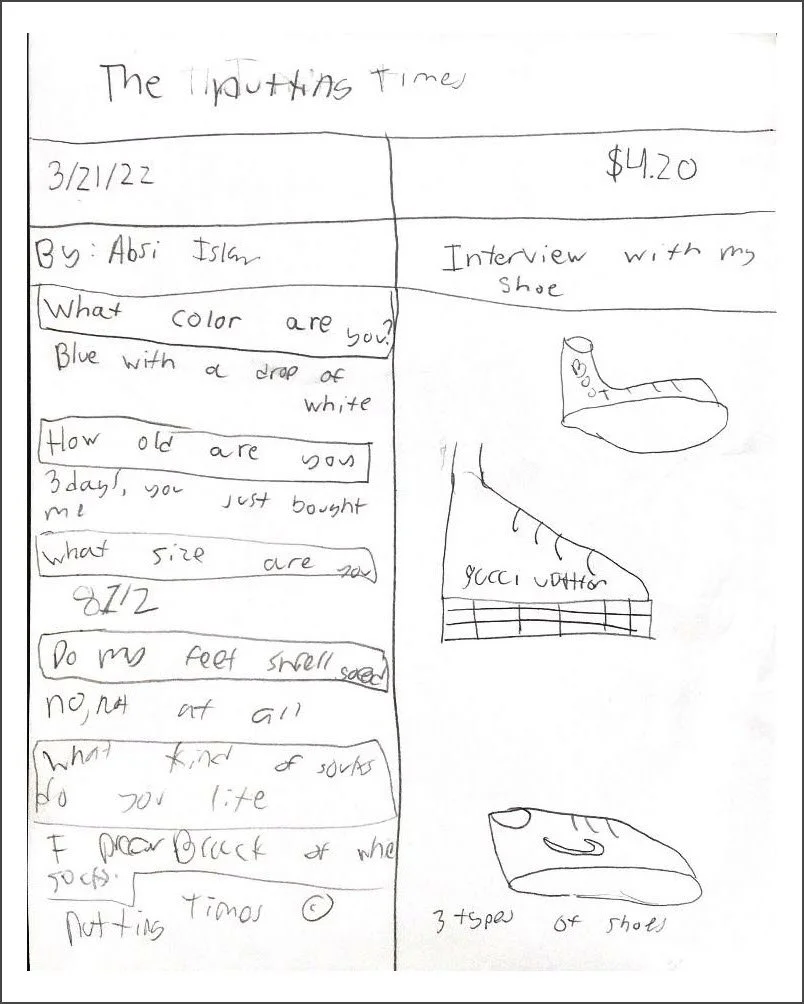 The Nutting Times
3/21/22
$4.20
By: Absi Islam
Interview with my
shoe
What color are you?
Blue with a drop of
white
How old are you
3 days, you just bought
me
What size are you
8 1/2
Do my feet smell
no, not at all
What kind of socks
do you like
I Black of
socks.
Nutting Times ©
Boot
gucci
3 types of shoes